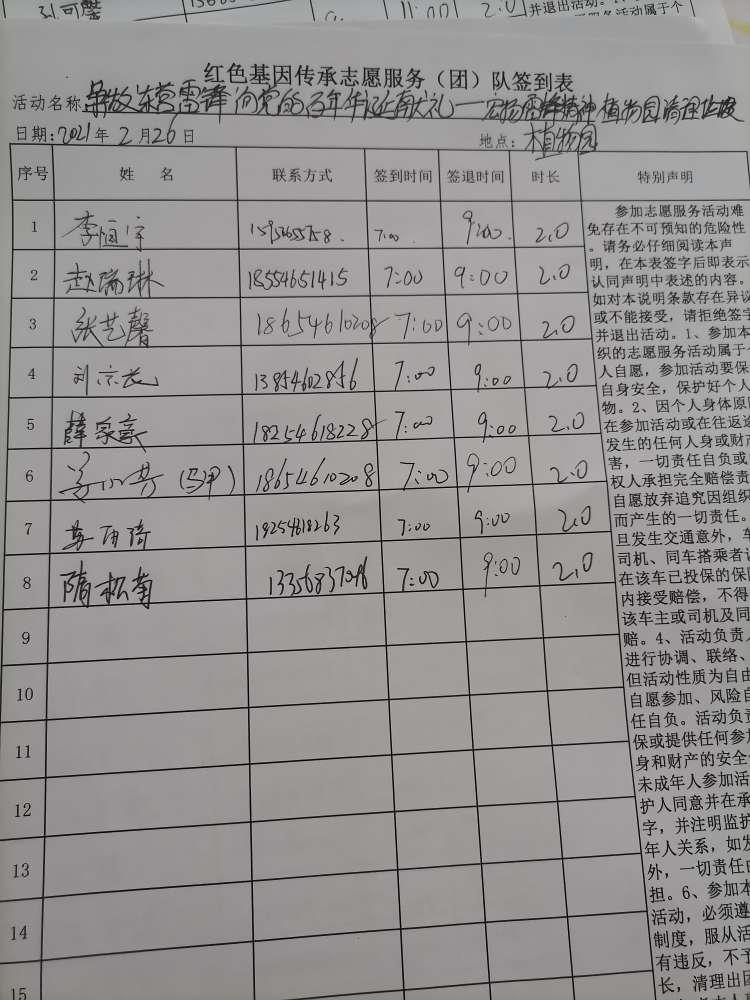 刘可馨 11:00 2.0 并退出活动。
服务活动属于个
红色基因传承志愿服务（团）队签到表
活动名称 争做东营雷锋 向党的百年华诞献礼——弘扬雷锋精神植物园清理垃圾
日期：2021年2月26日 地点：植物园
序号 姓 名 联系方式 签到时间 签退时间 时长 特别声明
1 李恒宇 7:00 9:00 2.0
2 赵瑞琳 18554651415 7:00 9:00 2.0
3 张艺馨 18654610208 7:00 9:00 2.0
4 刘宗武 13854602856 7:00 9:00 2.0
5 薛家豪 18254618228 7:00 9:00 2.0
6 (马甲) 18654610208 7:00 9:00 2.0
7 18254618263 7:00 9:00 2.0
8 隋松南 7:00 9:00 2.0
9
10
11
12
13
14
15
参加志愿服务活动难
免存在不可预知的危险性
。请务必仔细阅读本声
明，在本表签字后即表示
认同声明中表述的内容。
如对本说明条款存在异议
或不能接受，请拒绝签字
并退出活动。1、参加本
织的志愿服务活动属于个
人自愿，参加活动要保
自身安全，保护好个人
物。2、因个人身体原因
在参加活动或在往返途
发生的任何人身或财产
害，一切责任自负或
权人承担完全赔偿责
自愿放弃追究因组织
而产生的一切责任。
旦发生交通意外，车
司机、同车搭乘者认
在该车已投保的保险
内接受赔偿，不得
该车主或司机及同
赔。4、活动负责人
进行协调、联络、
但活动性质为自由
自愿参加、风险自
任自负。活动负责
保或提供任何参加
身和财产的安全
未成年人参加活动
护人同意并在承
字，并注明监护
年人关系，如发
外，一切责任由
担。6、参加本
活动，必须遵
制度，服从活
有违反，不予
长，清理出团